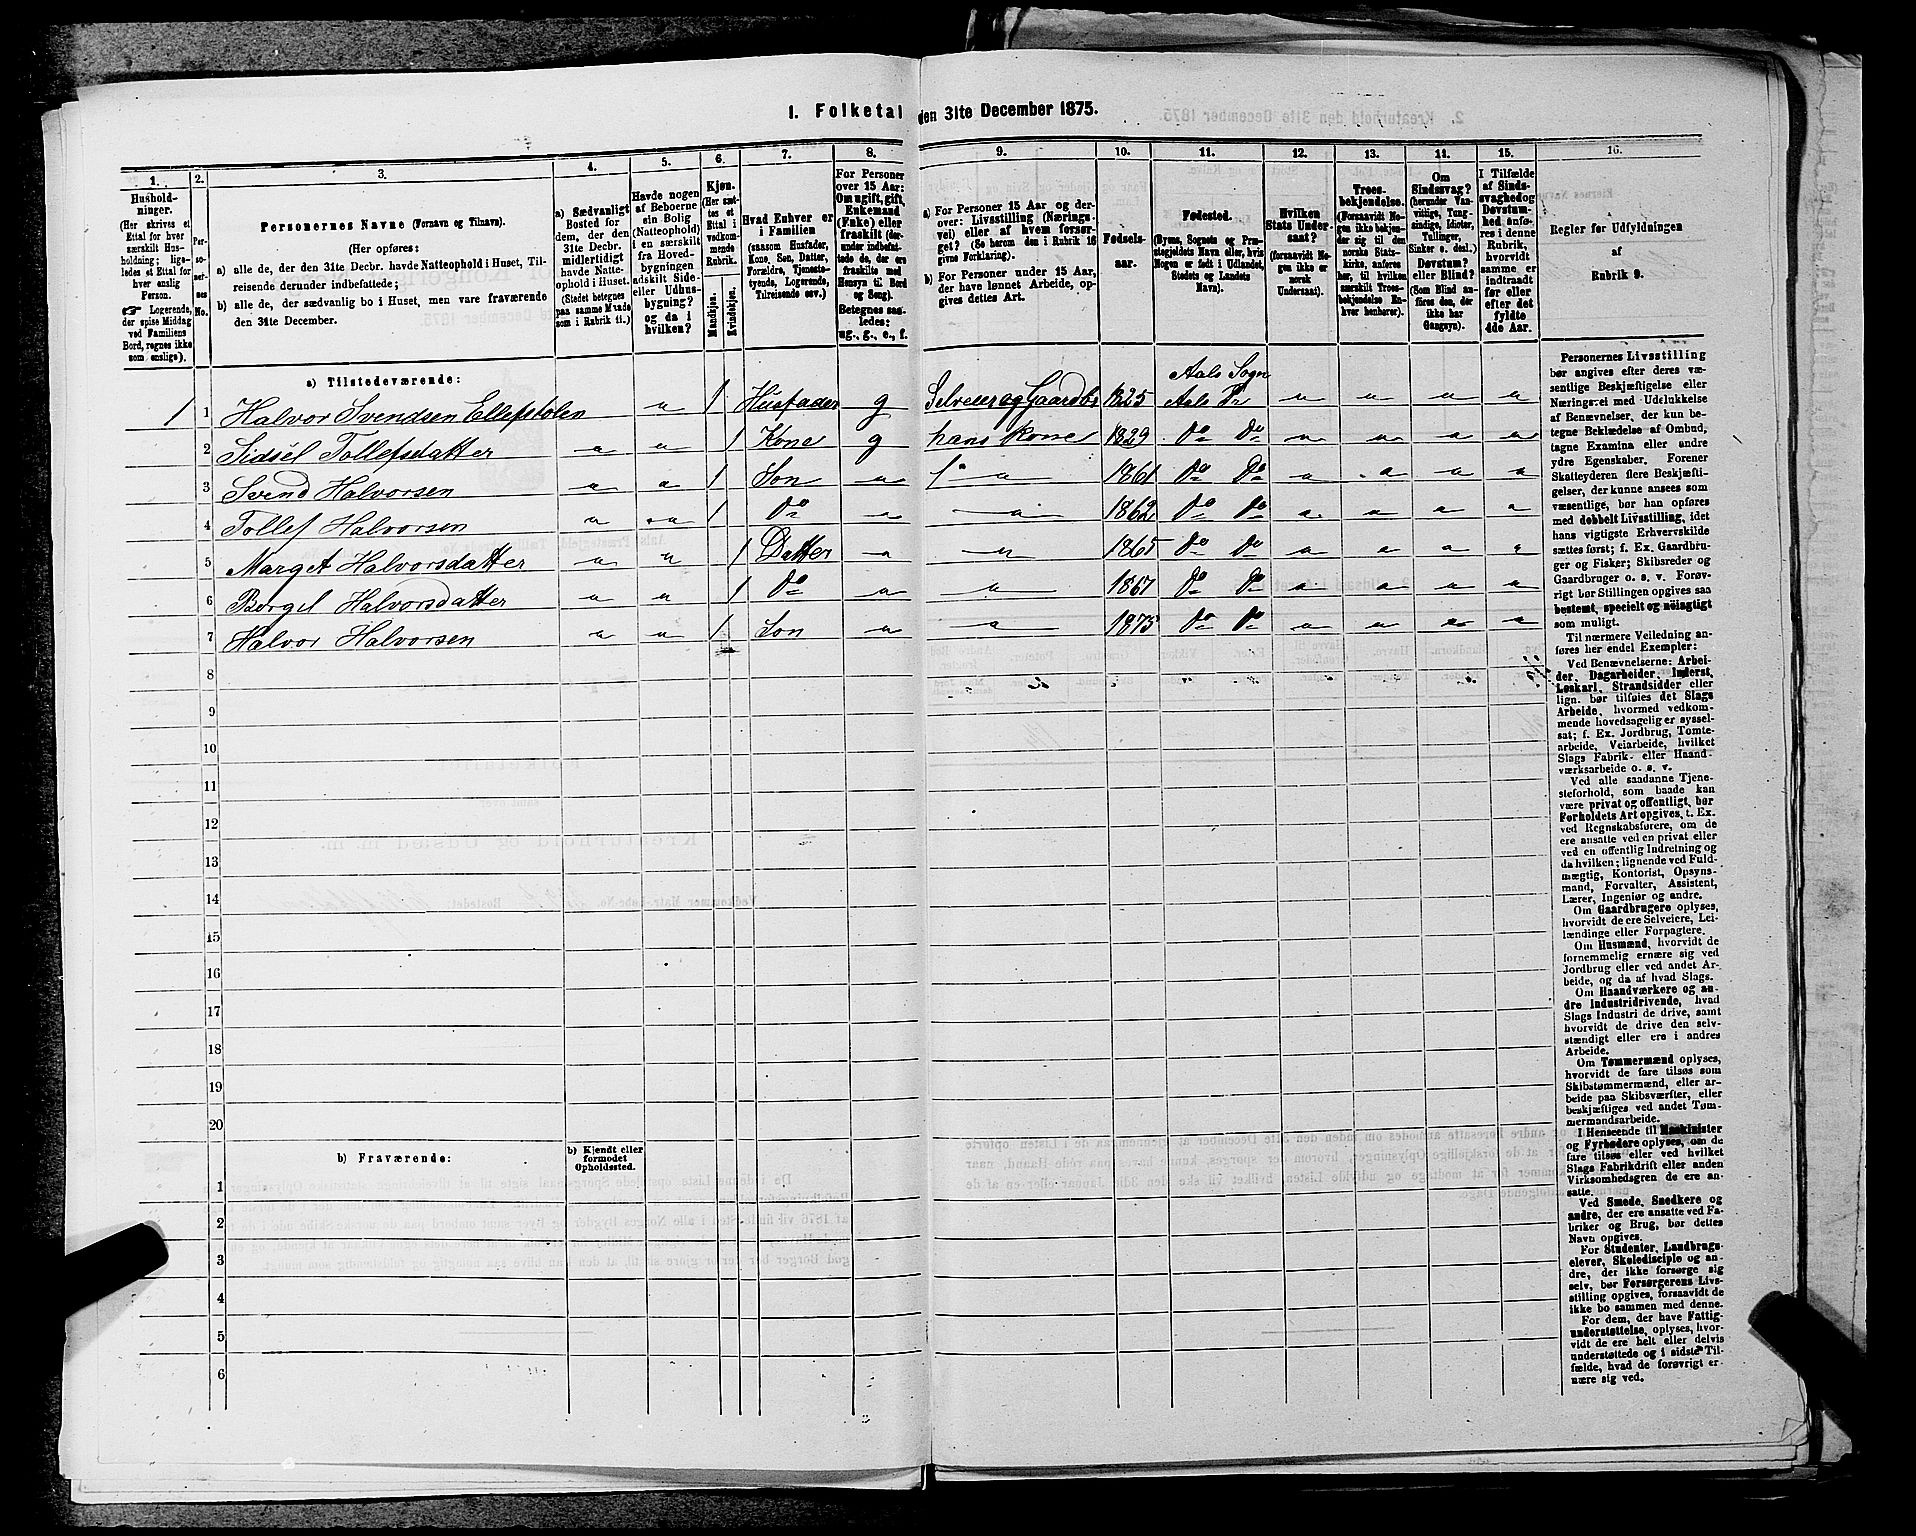 1. Folketal den 31te December 1875.
1.
2.
3.
4.
5.
6.
7.
8.
9.
10.
11.
12.
13.
14.
15.
16.
Hushold-
ninger.
(Her skrives et
Ettal for hver
særskilt Hus-
holdning; lige-
ledes et Ettal for
hver enslig
Person.
☞ Logerende,
der spise Middag
ved Familiens
Bord, regnes ikke
som enslige).
Per-
so-
ner-
nes
No.
Personernes Navne (Fornavn og Tilnavn).
(Her opføres:
a) alle de, der den 31te Decbr. havde Natteophold i Huset, Til-
reisende derunder indbefattede;
b) alle de, der sædvanlig bo i Huset, men vare fraværende
den 31te December.
a) Sædvanligt
Bosted for
dem, der den
31te Decbr.
midlertidigt
havde Natte-
ophold i Huset.
(Stedet betegnes
paa samme Maade
som i Rubrik 11.)
Havde nogen
af Beboerne
sin Bolig
(Natteophold)
i en særskilt
fra Hoved-
bygningen
adskilt Side-
eller Udhus-
bygning?
og da i
hvilken?
Kjøn.
(Her sæt-
tes et
Ettal i
vedkom-
mende
Rubrik.
Mandkjøn.
Kvindekjøn.
Hvad Enhver er
i Familien
(saasom Husfader,
Kone, Søn, Datter,
Forældre, Tjeneste-
tyende, Logerende,
Tilreisende osv.)
For Personer
over 15 Aar:
Om ugift, gift,
Enkemand
(Enke) eller
fraskilt (der-
under indbefat-
tede de, der ere
fraskilte med
Hensyn til Bord
og Seng).
Betegnes saa-
ledes:
ug., g., e., f.
a) For Personer 15 Aar og der-
over: Livsstilling (Nærings-
vei) eller af hvem forsør-
get? (Se herom den i Rubrik 16
givne Forklaring).
b) For Personer under 15 Aar,
der have lønnet Arbeide, op-
gives dettes Art.
Fødsels-
aar.
Fødested.
(Byens, Sognets og Præ-
stegjeldets Navn eller, hvis
Nogen er født i Udlandet,
Stedets og Landets
Navn).
Hvilken
Stats Under-
saat?
(forsaavidt No-
gen ikke er
norsk
Undersaat).
Troes-
bekjendelse.
(Forsaavidt No-
gen ikke bekjen-
der sig til den
norske Stats-
kirke, anføres
her, til hvilken
særskilt Troes-
bekjendelse En-
hver henhører).
Om
Sindssvag?
(herunder Van-
vittige, Tung-
sindige, Idioter,
Tullinger,
Sinker o. desl.)
Døvstum?
eller Blind?
(Som Blind an-
føres den, der
ikke har
Gangsyn).
I Tilfælde
af Sinds-
svaghed og
Døvstum-
hed anfø-
res i denne
Rubrik,
hvorvidt
samme er
indtraadt
før eller
efter det
fyldte
4de Aar.
Regler for Udfyldningen
af
Rubrik 9.
a) Tilstedeværende:
1 1 Halvor Svendsen Ellefstolen " 1 Husfader g Selveier og Gaardbr 1825 Aals Sogn Aals Pr " " " "
2 Sidsel Tollefsdatter " " 1 Kone g hans Kone 1829 Do Do " " " "
3 Svend Halvorsen " " 1 Søn " " 1861 Do Do " " " "
4 Tollef Halvorsen " " 1 Do " " 1862 Do Do " " " "
5 Marget Halvorsdatter " " 1 Datter " " 1865 Do Do " " " "
6 Bergit Halvorsdatter " " 1 Do " " 1867 Do Do " " " "
7 Halvor Halvorsen " " 1 Søn " " 1875 Do Do " " " "
8
9
10
11
12
13
14
15
16
17
18
19
20
b) Fraværende:
b) Kjendt eller
formodet
Opholdssted.
1
2
3
4
5
6
Personernes Livsstilling
bør angives efter deres væ-
sentlige Beskjæftigelse eller
Næringsvei med Udelukkelse
af Benævnelser, der kun be-
tegne Beklædelse af Ombud,
tagne Examina eller andre
ydre Egenskaber. Forener
Skatteyderen flere Beskjæfti-
gelser, der kunne ansees som
væsentlige, bør han opføres
med dobbelt Livsstilling, idet
hans vigtigste Erhvervskilde
sættes først; f. Ex. Gaardbru-
ger og Fisker; Skibsreder og
Gaardbruger o. s. v. Forøv-
rigt bør Stillingen opgives saa
bestemt, specielt og nøiagtigt
som muligt.
Til nærmere Veiledning an-
føres her endel Exempler:
Ved Benævnelserne: Arbei-
der, Dagarbeider, Inderst,
Løskarl, Strandsidder eller
lign. bør tilføies det Slags
Arbeide, hvormed vedkom-
mende hovedsagelig er syssel-
sat; f. Ex. Jordbrug, Tomte-
arbeide, Veiarbeide, hvilket
Slags Fabrik- eller Haand-
værksarbeide o. s. v.
Ved alle saadanne Tjene-
steforhold, som baade kan
være privat og offentligt, bør
Forholdets Art opgives, t. Ex.
ved Regnskabsførere, om de
ere ansatte ved en privat eller
ved en offentlig Indretning og
da hvilken; lignende ved Fuld-
mægtig, Kontorist, Opsyns-
mand, Forvalter, Assistent,
Lærer, Ingeniør og andre.
Om Gaardbrugere oplyses,
hvorvidt de ere Selveiere, Lei-
lændinge eller Forpagtere.
Om Husmænd, hvorvidt de
fornemmelig ernære sig ved
Jordbrug eller ved andet Ar-
beide, og da af hvad Slags.
Om Haandværkere og an-
dre Industridrivende, hvad
Slags Industri de drive, samt
hvorvidt de drive den selv-
stændigt eller ere i andres
Arbeide.
Om Tømmermænd oplyses,
hvorvidt de fare tilsøs som
Skibstømmermænd, eller ar-
beide paa Skibsværfter, eller
beskjæftiges ved andet Tøm-
mermandsarbeide.
I Henseende til Maskinister
og Fyrbødere oplyses, om de
fare tilsøs eller ved hvilket
Slags Fabrikdrift eller anden
Virksomhedsgren de ere an-
satte.
Ved Smede, Snedkere og
andre, der ere ansatte ved Fa-
briker og Brug, bør dettes
Navn opgives.
For Studenter, Landbrugs-
elever, Skoledisciple og an-
dre, der ikke forsørge sig
selv, bør Forsørgerens Livs-
stilling opgives, forsaavidt de
ikke bo sammen med denne.
For dem, der have Fattig-
understøttelse, oplyses, hvor-
vidt de ere helt eller delvis
understøttede og i sidste Til-
fælde, hvad de forøvrigt er-
nære sig ved.